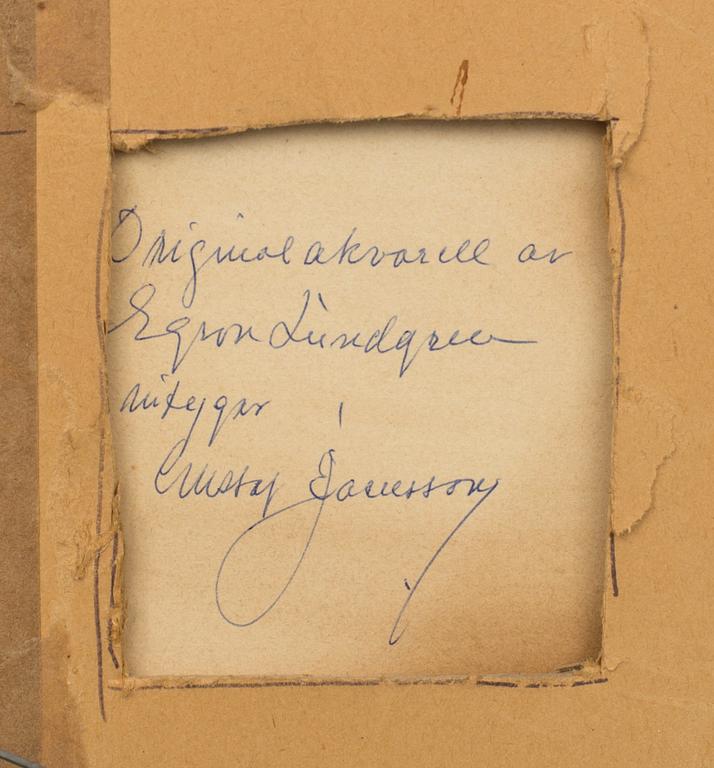 Original akvarell av
Egron Lundgren
intygar
Gustaf Jaensson